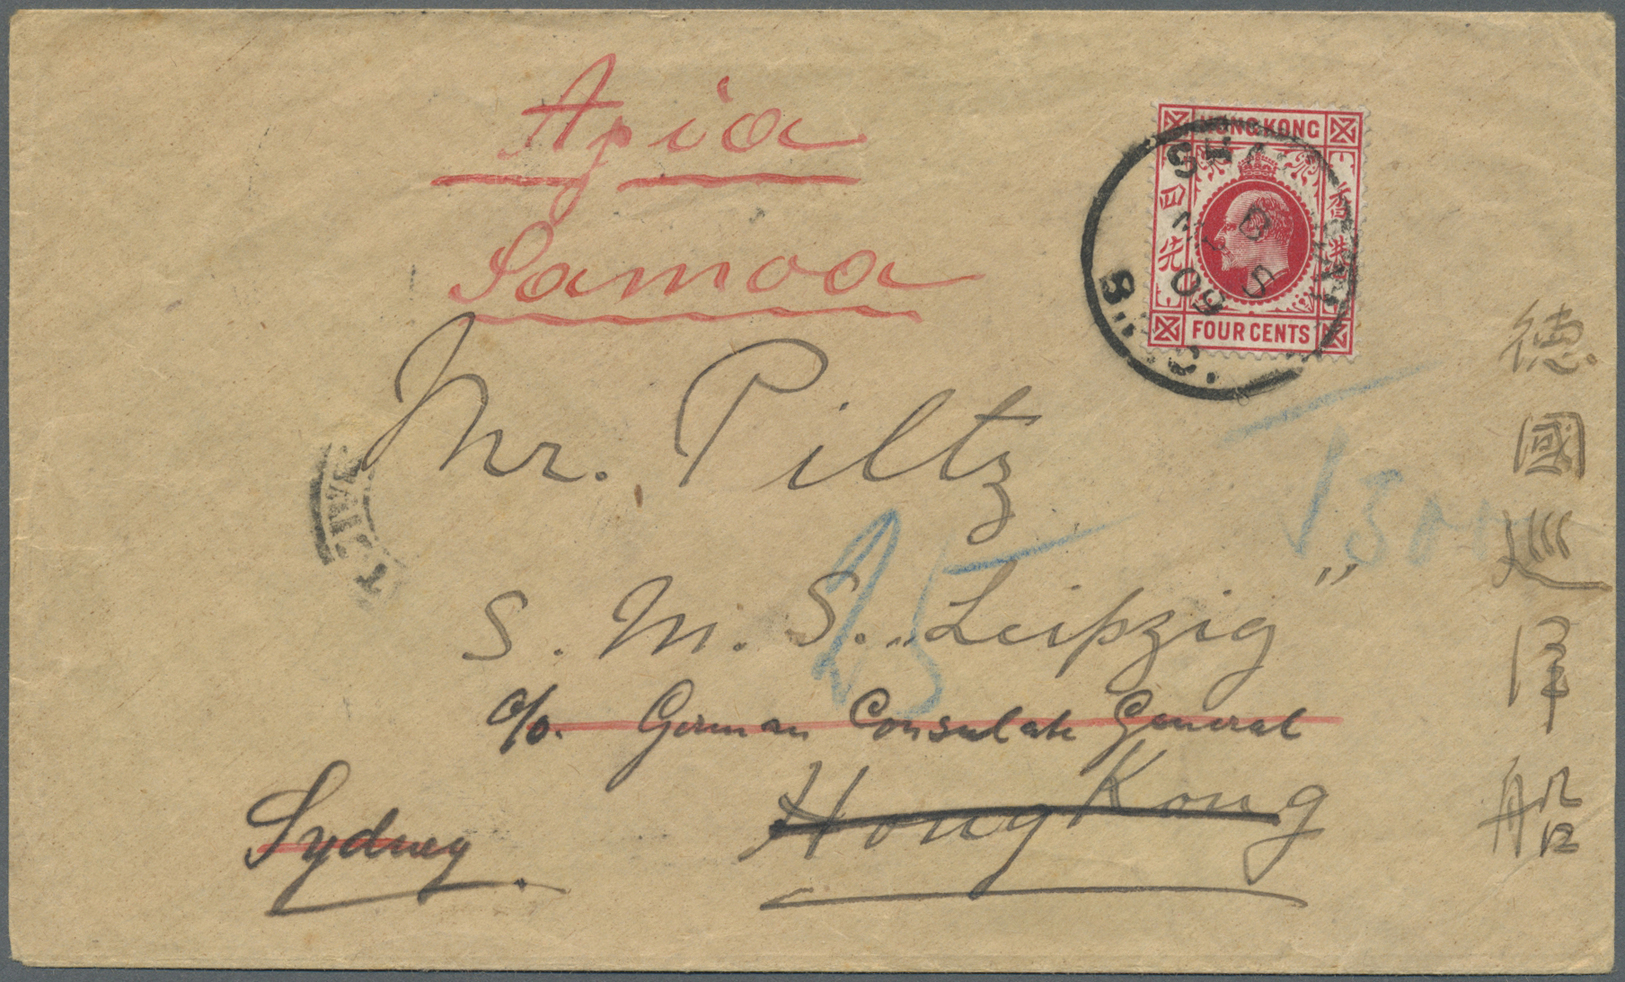 Apia
Samoa
HONG KONG
四先
香港
FOUR CENTS
B
5
09
Mr. Piltz
S. M. S. „Leipzig"
c/o. German Consulate General
Hong Kong
Sydney.
25
德國巡洋船